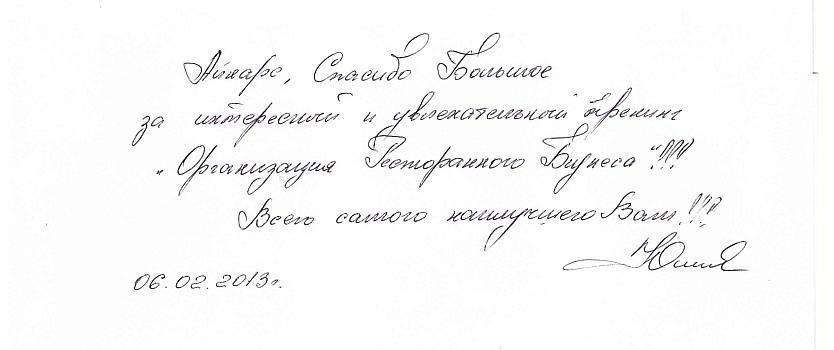 Айнаре, Спасибо Большое
за интересный и увлекательный тренинг
"Организация Ресторанного Бизнеса"!!!
Всего самого наилучшего Вам!!!
Юлия
06.02.2013г.